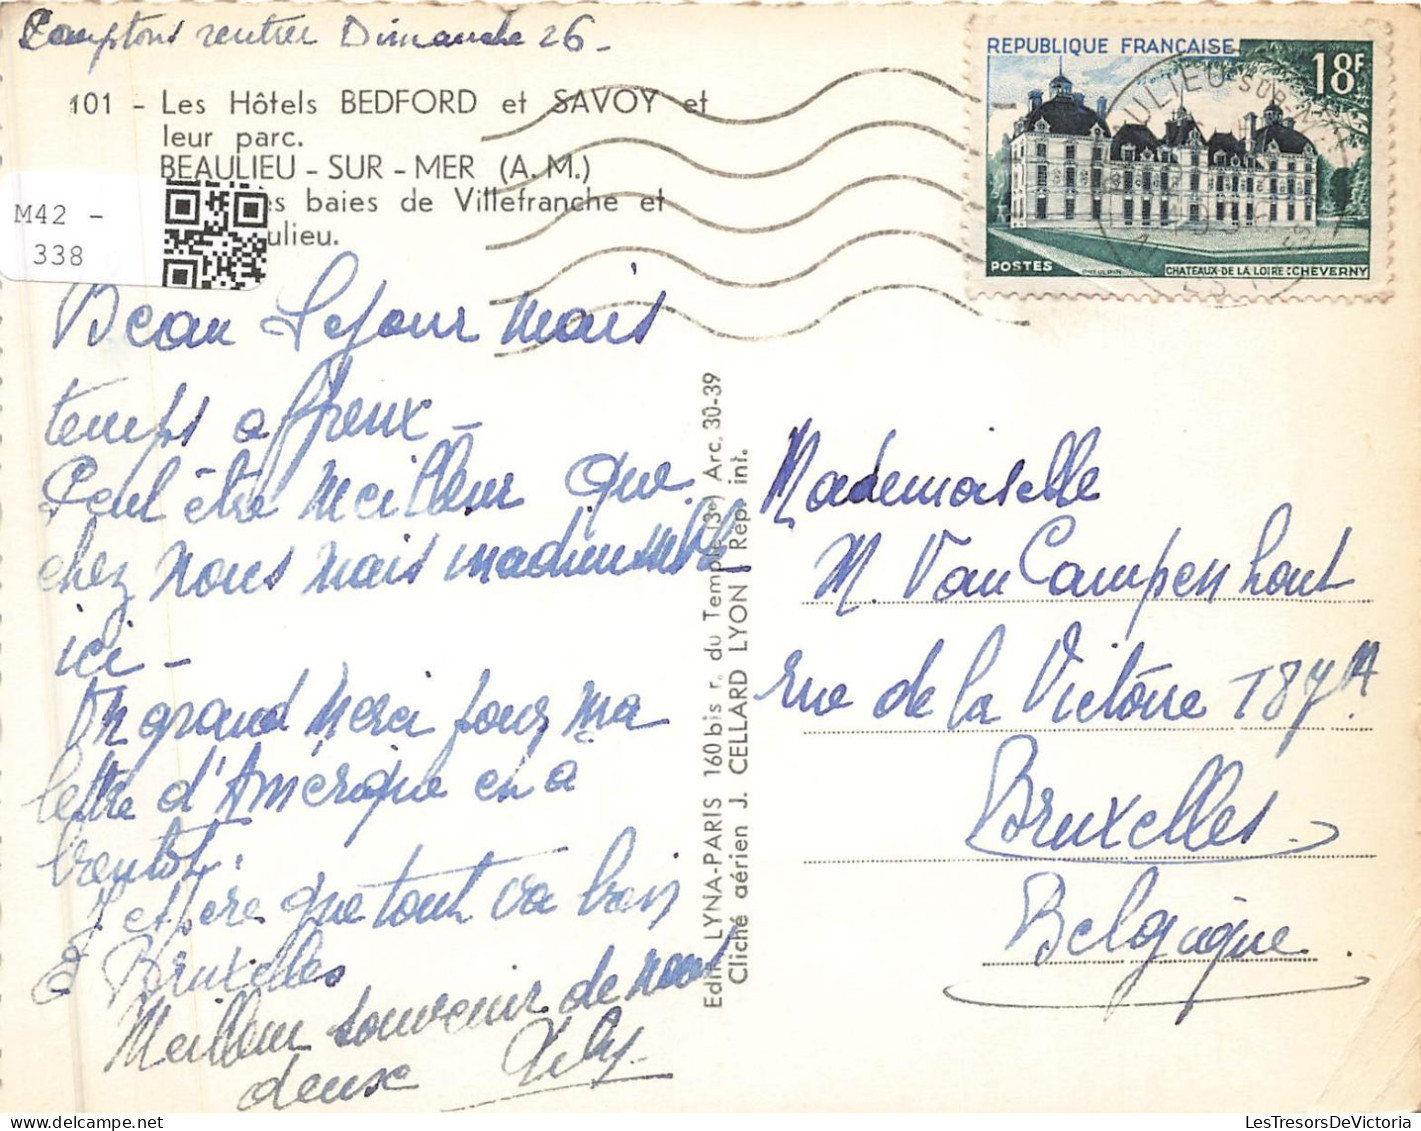 Comptons rentrer Dimanche 26 -
101 - Les Hôtels BEDFORD et SAVOY et
leur parc.
BEAULIEU - SUR - MER (A. M.)
es baies de Villefranche et
ulieu.
M42 -
338
REPUBLIQUE FRANÇAISE
18F
POSTES
CHATEAUX DE LA LOIRE : CHEVERNY
Beau Sejour mais
temps affreux -
Peut être meilleur que
chez nous mais
ici -
Un grand Merci pour ma
lettre d'Amérique en a
bientot.
J espere que tout va bien
a Bruxelles
Meilleur souvenir de nous
deux
Edit. LYNA-PARIS 160 bis r. du Temple (3e) Arc. 30-39
Cliché aérien J. CELLARD LYON Rep. int.
Mademoiselle
M. Van Campenhout
rue de la Victoire 187A
Bruxelles
Belgique.
LesTresorsDeVictoria